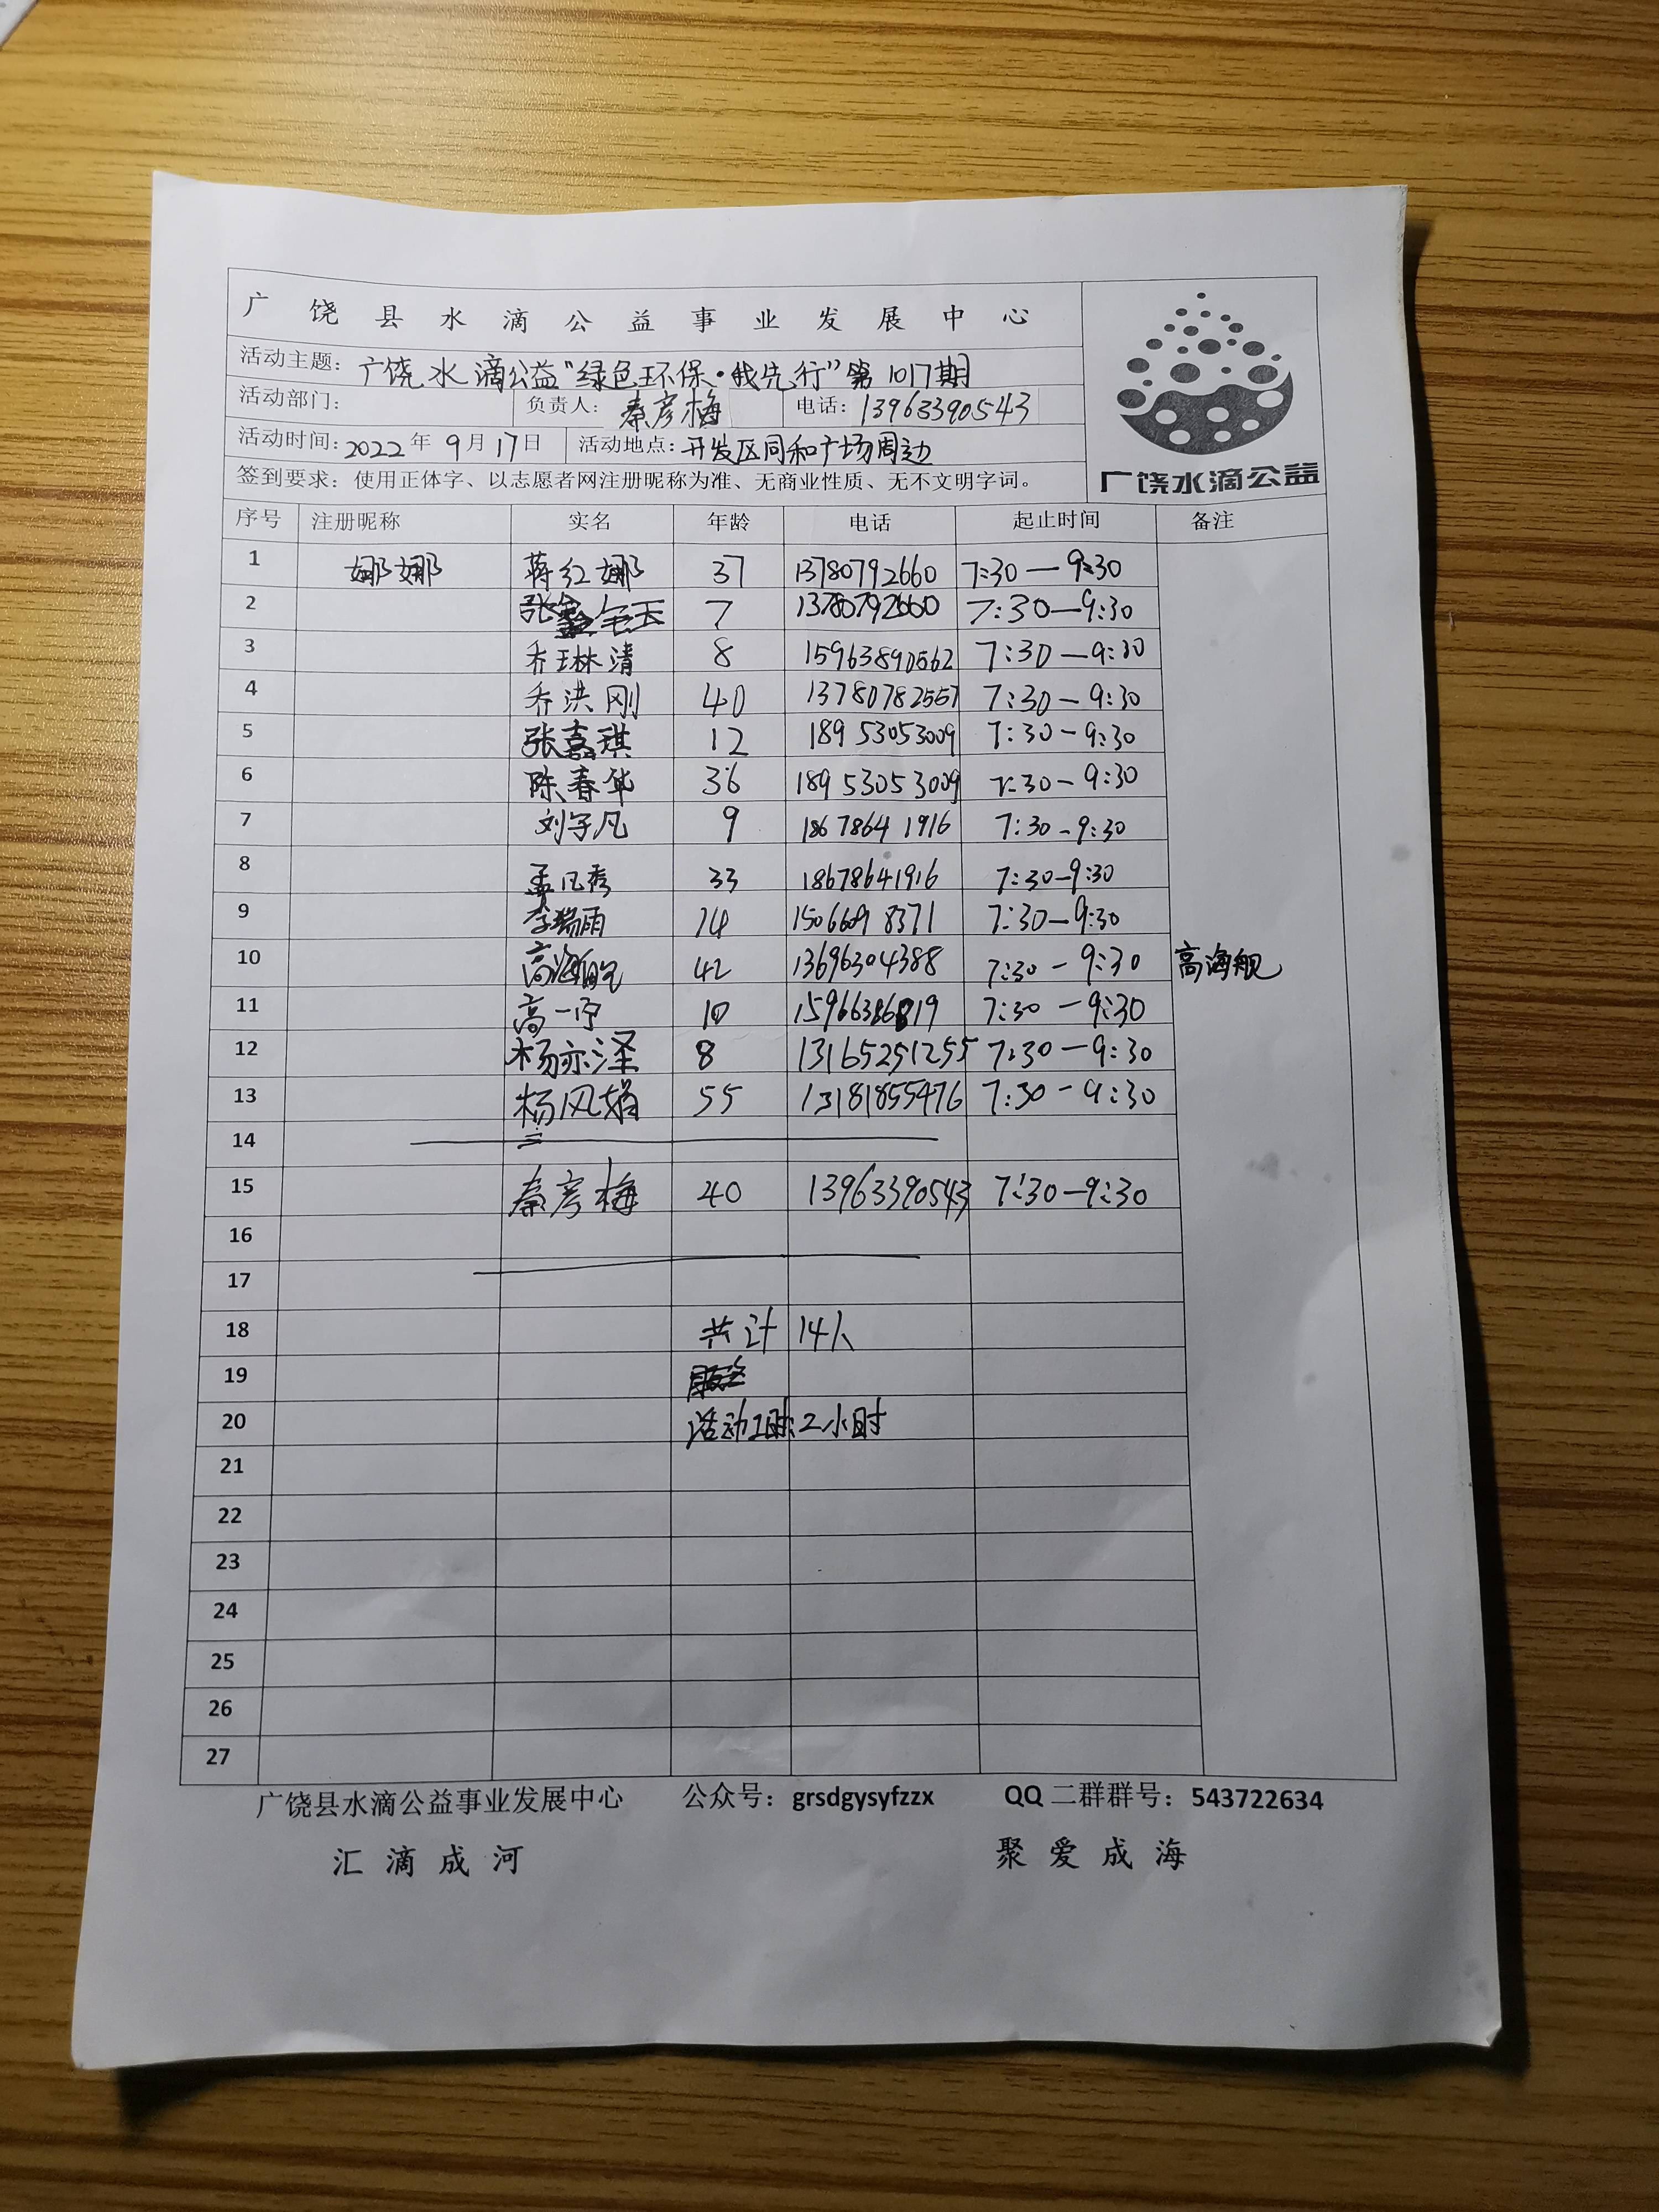 广饶县水滴公益事业发展中心
活动主题：广饶水滴公益“绿色环保·我先行”第1017期
活动部门： 负责人：秦彦梅 电话：13963390543
活动时间：2022年9月17日 活动地点：开发区同和广场周边
签到要求：使用正体字、以志愿者网注册昵称为准、无商业性质、无不文明字词。
广饶水滴公益
序号 注册昵称 实名 年龄 电话 起止时间 备注
1 娜娜 蒋红娜 37 13780792660 7:30—9:30
2 张 7 13780792660 7:30—9:30
3 乔琳清 8 15963890562 7:30—9:30
4 乔洪刚 40 13780782557 7:30—9:30
5 张嘉琪 12 18953053009 7:30—9:30
6 陈春华 36 18953053009 7:30—9:30
7 刘子凡 9 18678641916 7:30-9:30
8 孟凡秀 33 18678641916 7:30-9:30
9 李瑞雨 14 7:30—9:30
10 高海舰 42 13696304388 7:30-9:30 高海舰
11 高一 10 7:30—9:30
12 杨亦泽 8 13165251255 7:30—9:30
13 杨风娟 55 13181855476 7:30-9:30
14
15 秦彦梅 40 13963390543 7:30—9:30
16
17
18 共计14人
19
20 活动2小时
21
22
23
24
25
26
27
广饶县水滴公益事业发展中心 公众号：grsdgysyfzzx QQ二群群号：543722634
汇滴成河 聚爱成海